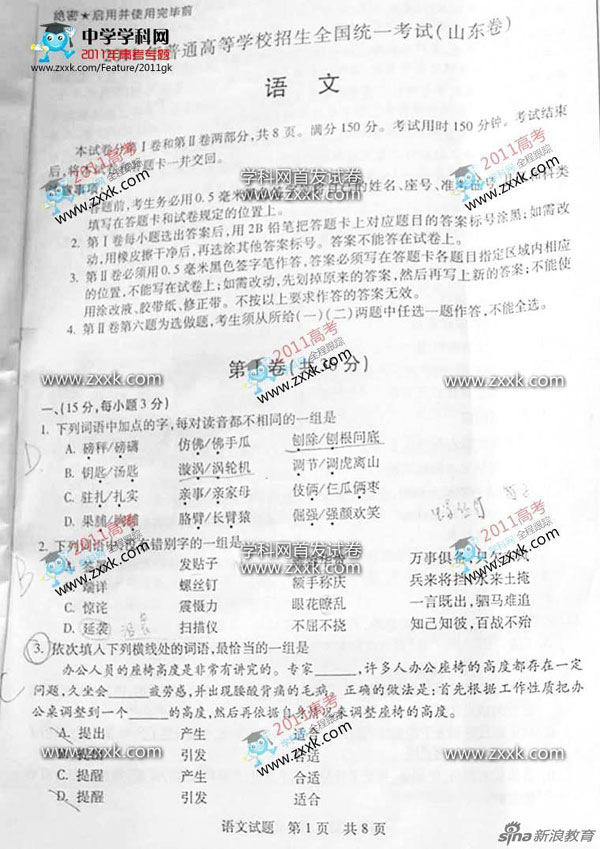 绝密★启用并使用完毕前
中学学科网
2011年高考专题
www.zxxk.com/Feature/2011gk
普通高等学校招生全国统一考试(山东卷)
语 文
本试卷分第Ⅰ卷和第Ⅱ卷两部分,共8页。满分150分。考试用时150分钟。考试结束
后,将 一并交回。
2011高考
全程跟踪
www.zxxk.com
学科网首发试卷
www.zxxk.com
2011高考
全程跟踪
www.zxxk.com
答题前,考生务必用0.5毫米黑色 的姓名、座号、准考 和科类
填写在答题卡和试卷规定的位置上。
2. 第Ⅰ卷每小题选出答案后,用2B铅笔把答题卡上对应题目的答案标号涂黑;如需改
动,用橡皮擦干净后,再选涂其他答案标号。答案不能答在试卷上。
3. 第Ⅱ卷必须用0.5毫米黑色签字笔作答,答案必须写在答题卡各题目指定区域内相应
的位置,不能写在试卷上;如需改动,先划掉原来的答案,然后再写上新的答案;不能使
用涂改液、胶带纸、修正带。不按以上要求作答的答案无效。
4. 第Ⅱ卷第六题为选做题,考生须从所给(一)(二)两题中任选一题作答,不能全选。
2011高考
全程跟踪
第Ⅰ卷(共 分)
www.zxxk.com
www.zxxk.com
www.zxxk.com
一、(15分,每小题3分)
1. 下列词语中加点的字,每对读音都不相同的一组是
D
A. 磅秤/磅礴 仿佛/佛手瓜 刨除/刨根问底
B. 钥匙/汤匙 漩涡/涡轮机 调节/调虎离山
C. 驻扎/扎实 亲事/亲家母 伎俩/仨瓜俩枣
D. 果脯/胸脯 胳臂/长臂猿 倔强/强颜欢笑
2011高考
全程跟踪
www.zxxk.com
学科网首发试卷
www.zxxk.com
2011高考
全程跟踪
www.zxxk.com
2. 下列词语中 错别字的一组是
B
发贴子 万事俱
B. 端详 螺丝钉 额手称庆 兵来将挡 水来土掩
C. 惊诧 震慑力 眼花瞭乱 一言既出,驷马难追
D. 沿袭 扫描仪 不屈不挠 知己知彼,百战不殆
3. 依次填入下列横线处的词语,最恰当的一组是
办公人员的座椅高度是非常有讲究的。专家______,许多人办公座椅的高度都存在一定
问题,久坐会______疲劳感,并出现腰酸背痛的毛病。正确的做法是:首先根据工作性质把办
公桌调整到一个______的高度,然后再依据自身情况来调整座椅的高度。
A. 提出 产生 适合
B. 提出 引发 合适
C. 提醒 产生 合适
D. 提醒 引发 适合
www.zxxk.com
2011高考
全程跟踪
www.zxxk.com
www.zxxk.com
语文试题 第1页 共8页
sina新浪教育